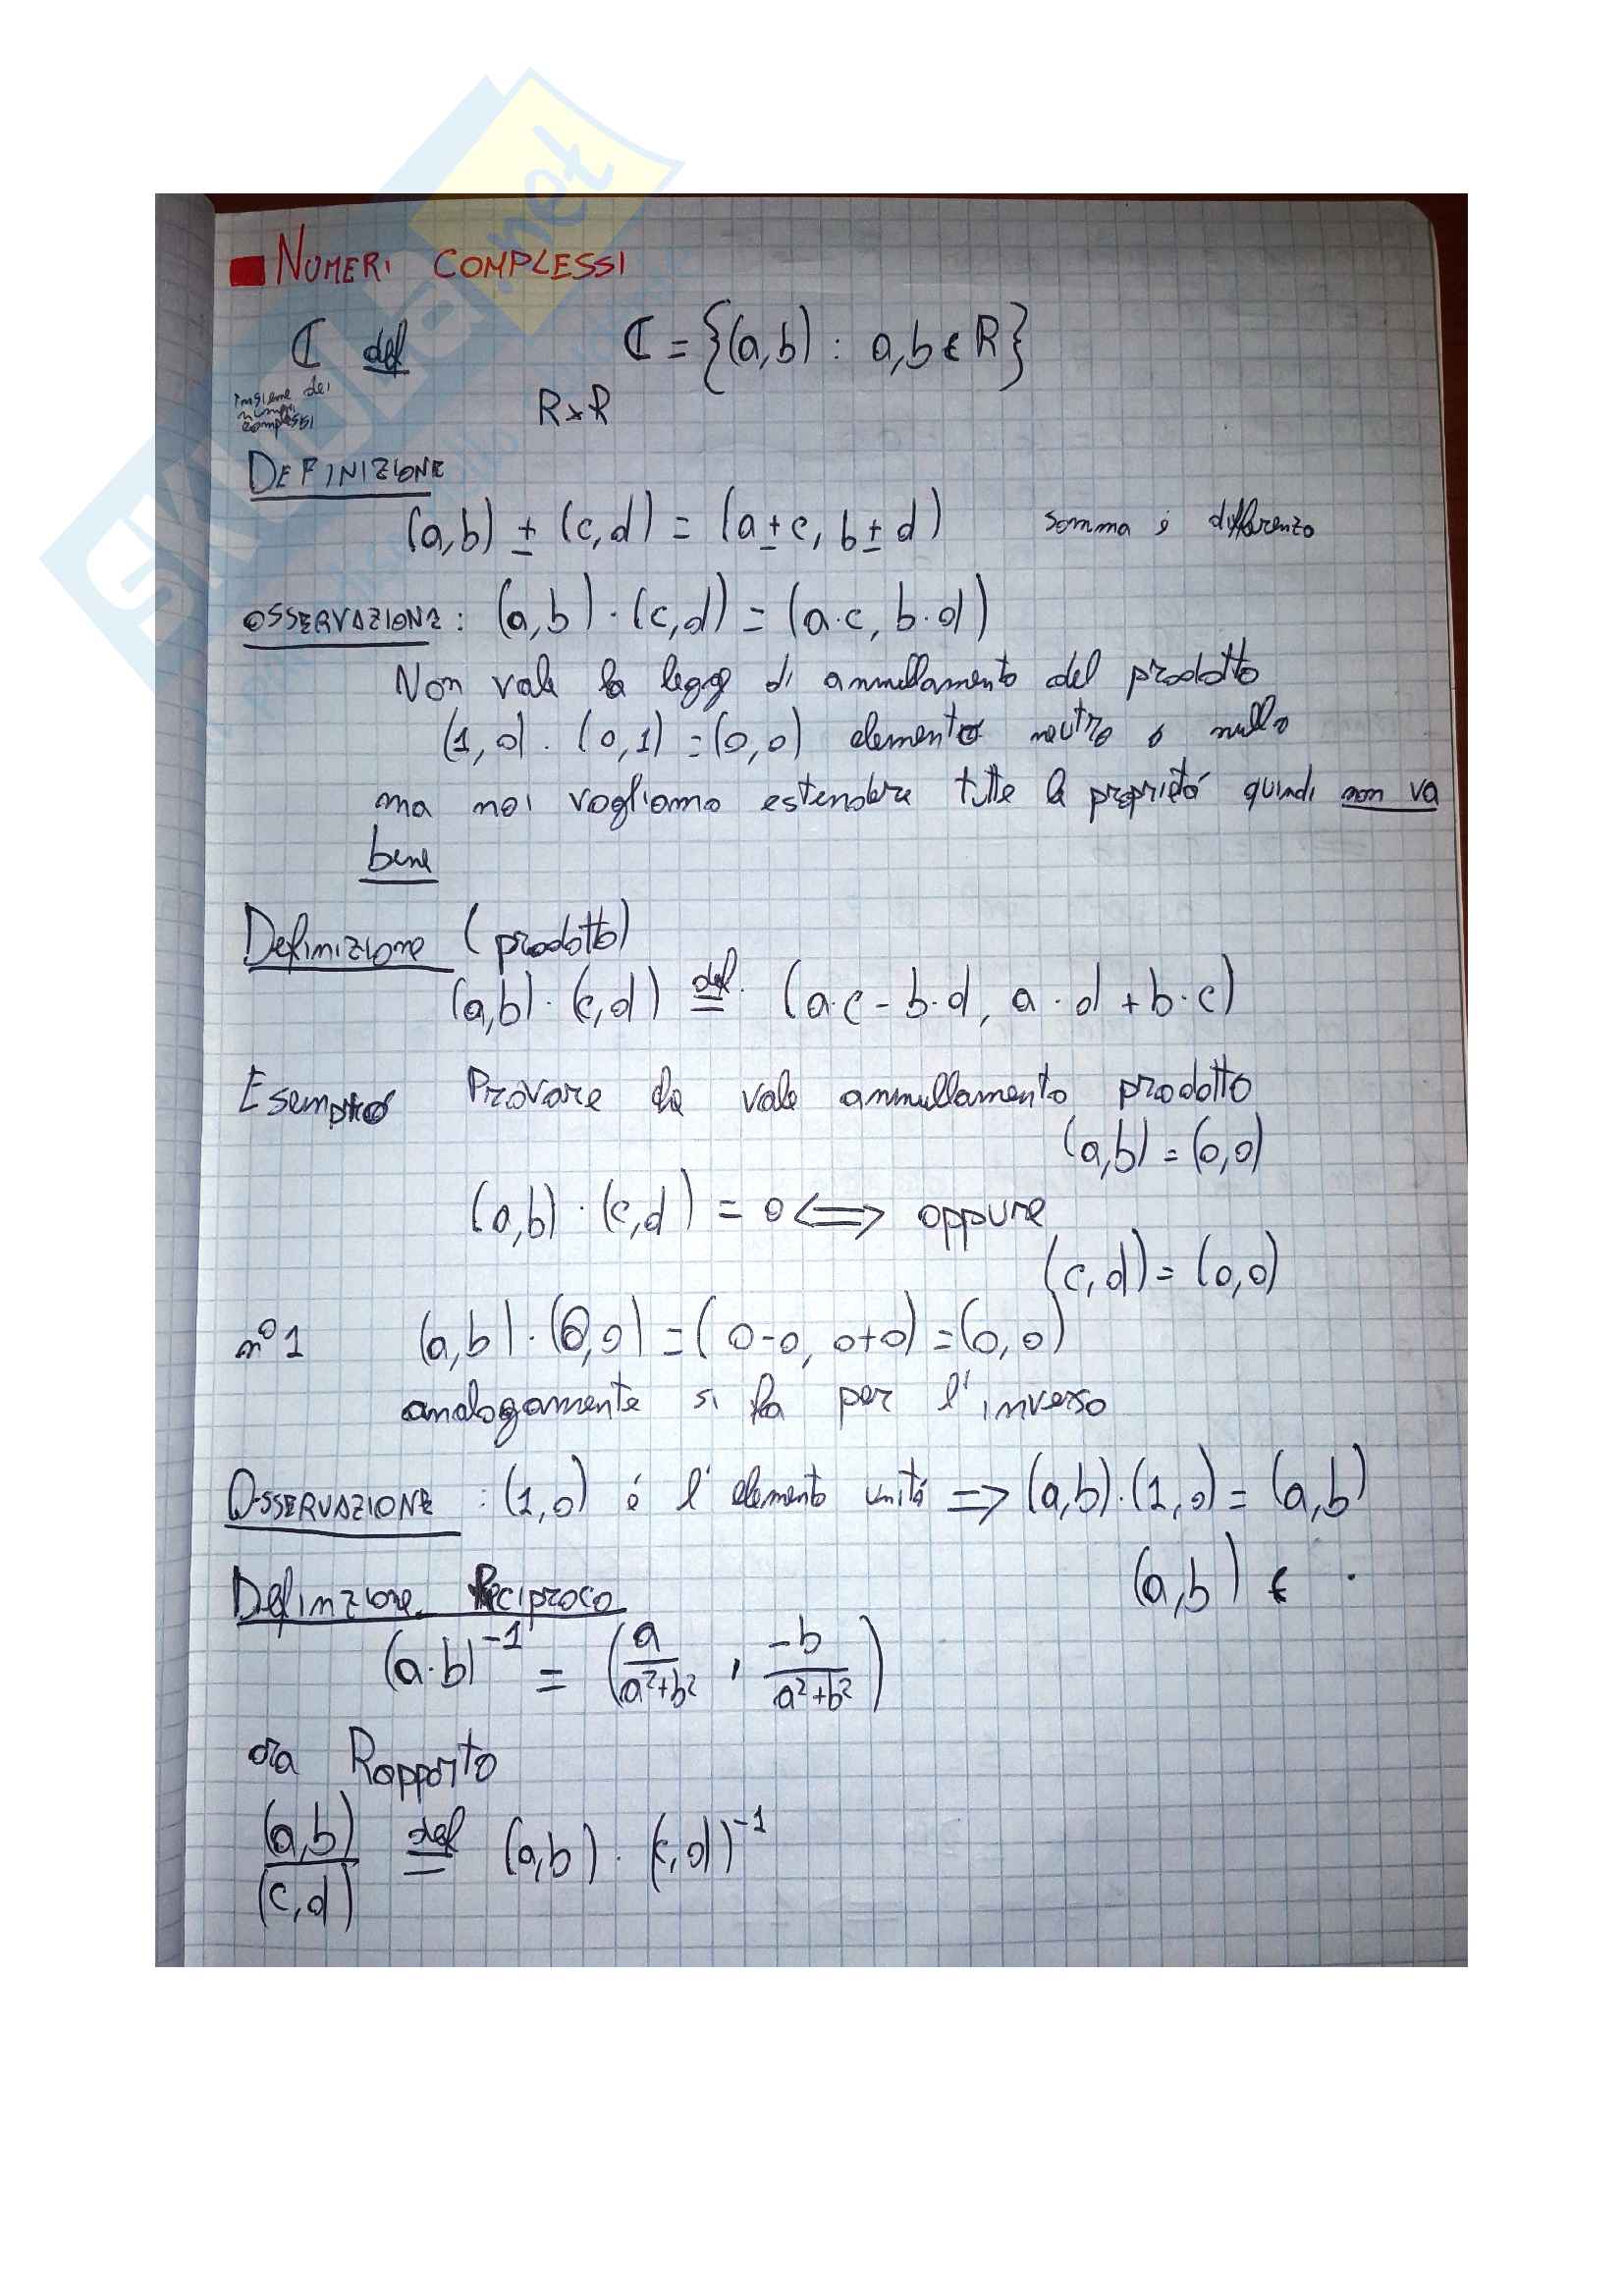 NUMERI COMPLESSI
ℂ def ℂ = {(a,b) : a,b ∈ R}
insieme dei
numeri
complessi
R×R
DEFINIZIONE
(a,b) ± (c,d) = (a±c, b±d) somma e differenza
OSSERVAZIONE : (a,b) · (c,d) = (a·c, b·d)
Non vale la legge di annullamento del prodotto
(1,0) · (0,1) = (0,0) elemento neutro o nullo
ma noi vogliamo estendere tutte le proprietá quindi non va
bene
Definizione (prodotto)
(a,b) · (c,d) =def. (a·c - b·d, a·d + b·c)
Esempio Provare che vale annullamento prodotto
(a,b) = (0,0)
(a,b) · (c,d) = 0 <=> oppure
(c,d) = (0,0)
nº1 (a,b) · (0,0) = (0-0, 0+0) = (0,0)
analogamente si fa per l'inverso
OSSERVAZIONE : (1,0) é l'elemento unitá => (a,b)·(1,0) = (a,b)
(a,b) ∈ .
Definzione Reciproco
(a·b)^-1 = (a/(a²+b²) , -b/(a²+b²))
ora Rapporto
(a,b)/(c,d) =def (a,b) · (c,d)^-1
SKUOLA.net